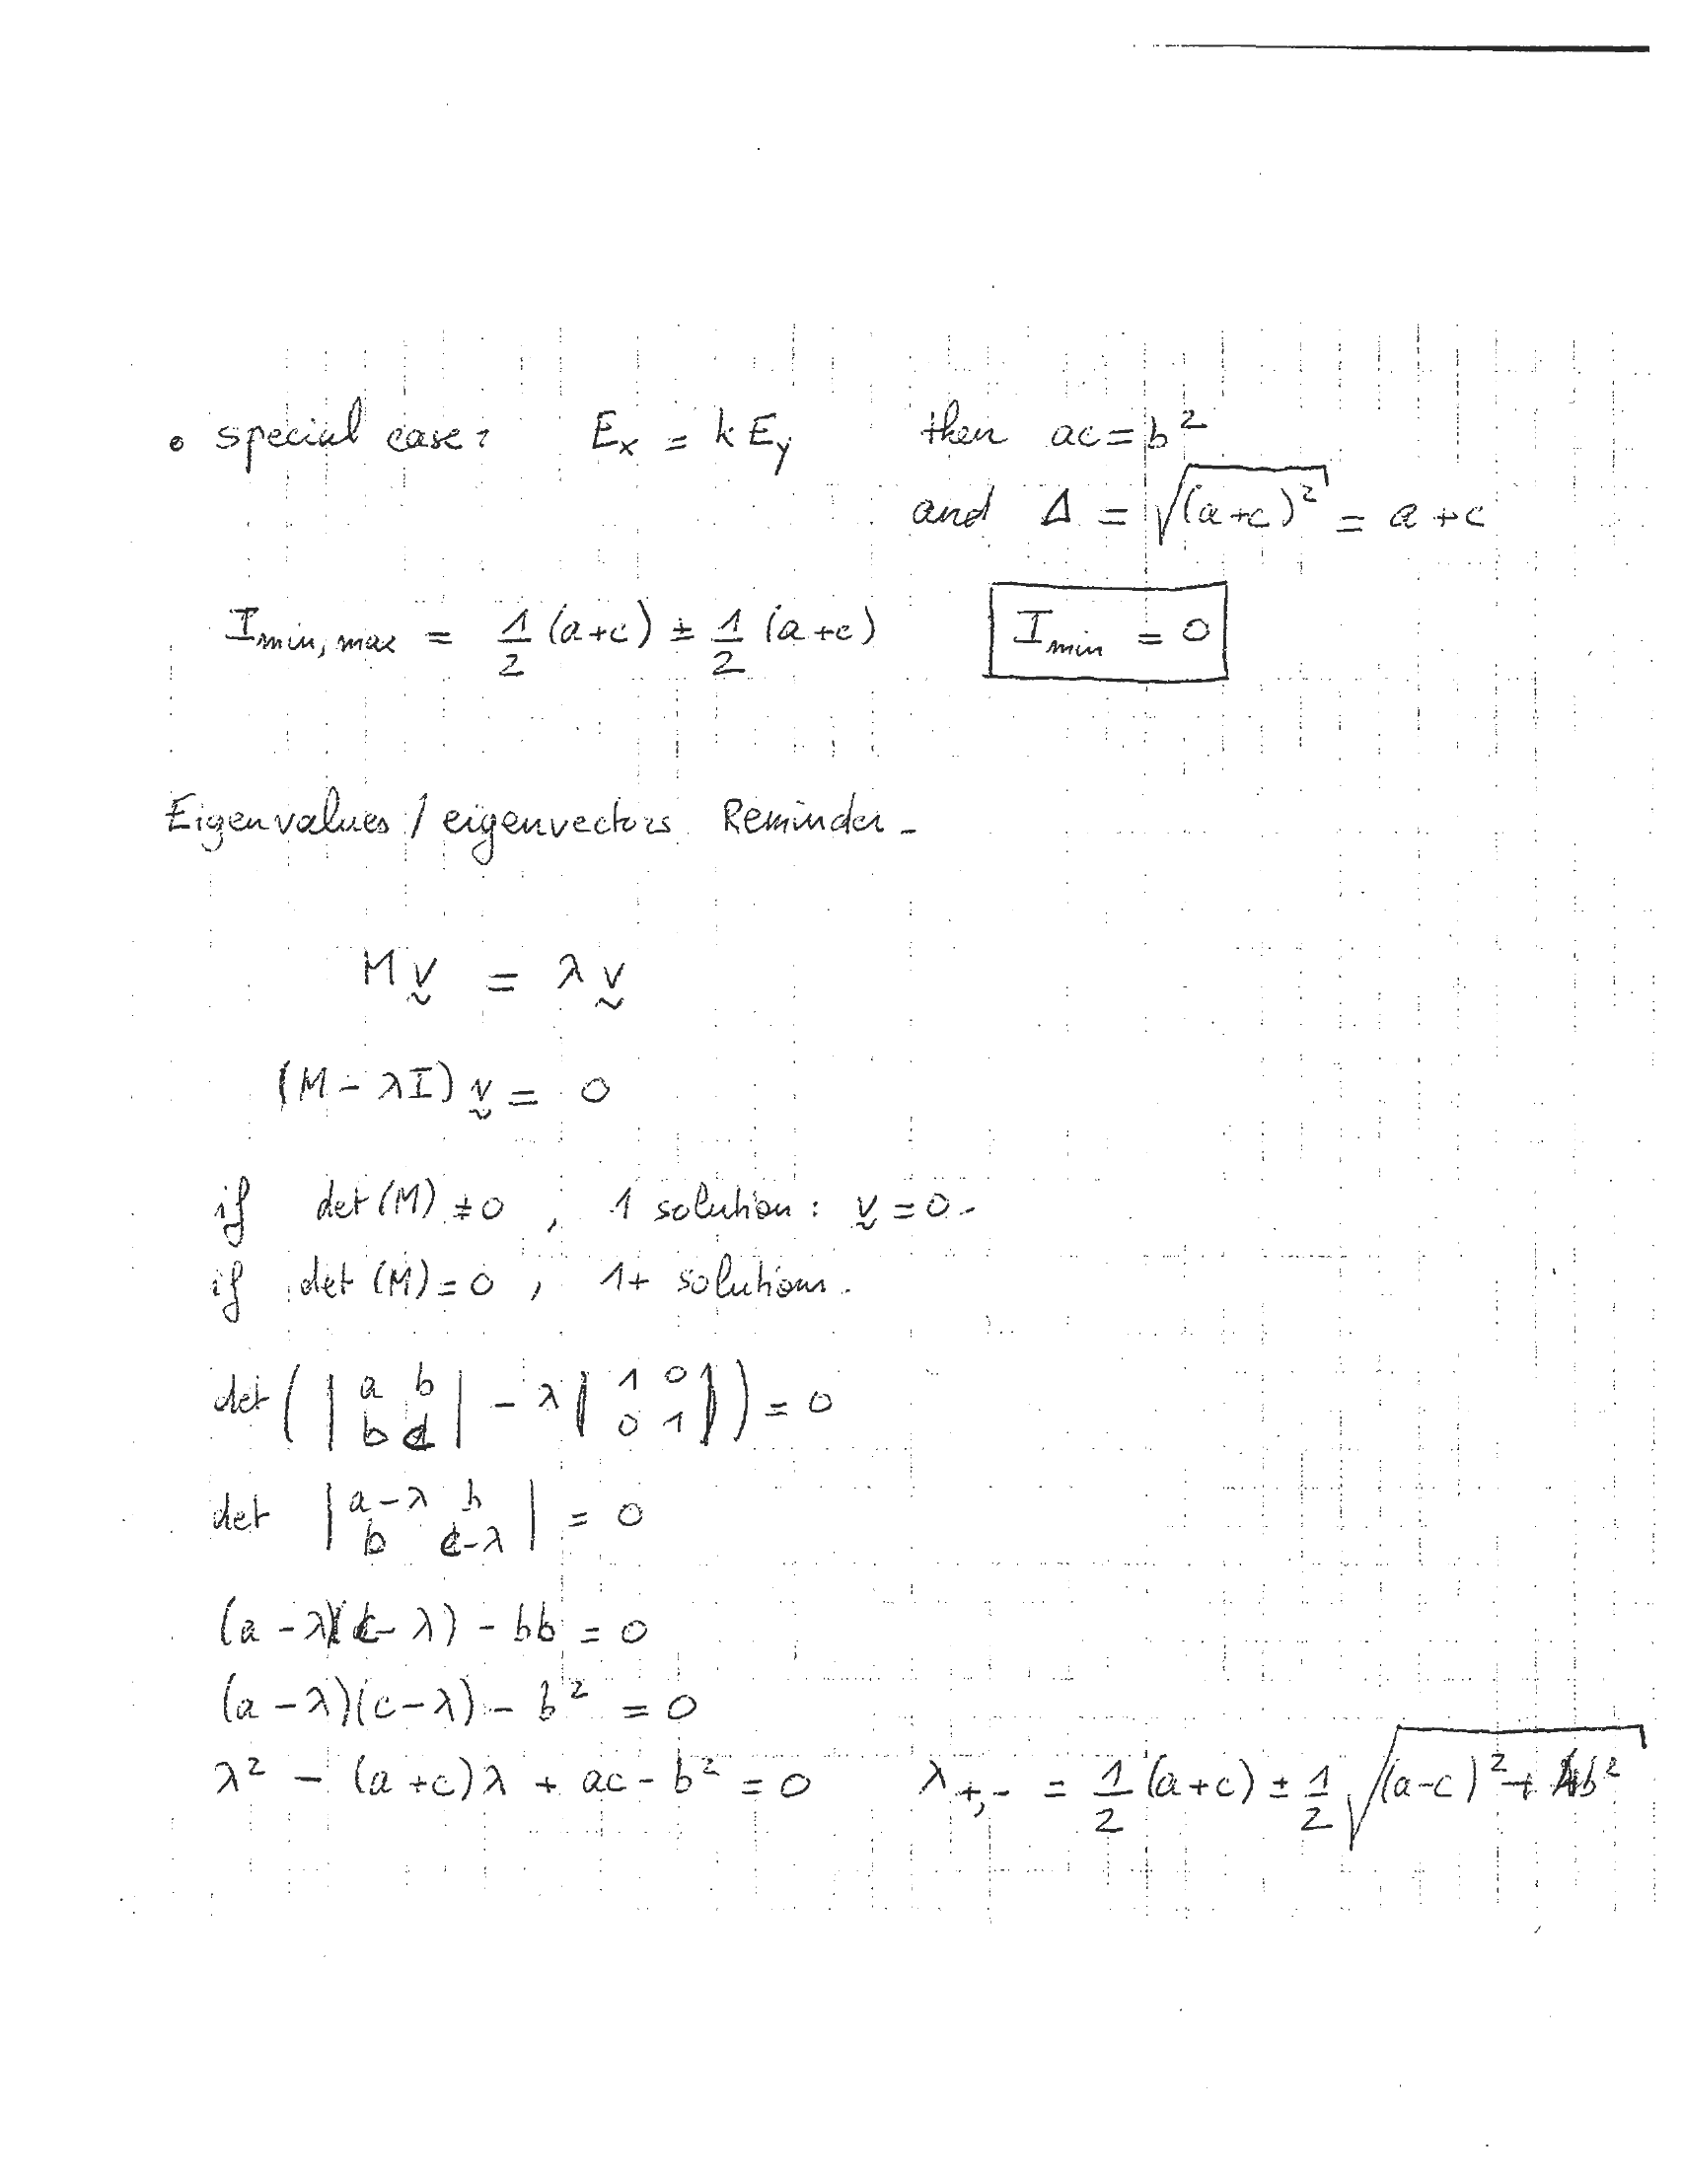 • special case: Eₓ = k E_y then ac = b²
and Δ = √((a+c)²) = a + c
I_min, max = 1/2 (a+c) ± 1/2 (a+c) I_min = 0
Eigenvalues / eigenvectors Reminder -
M v = λ v
(M - λI) v = 0
if det (M) ≠ 0 , 1 solution : v = 0 -
if det (M) = 0 , 1+ solutions.
det ( | a b | - λ | 1 0 | ) = 0
b c 0 1
det | a-λ b | = 0
b c-λ
(a - λ)(c - λ) - bb = 0
(a - λ)(c - λ) - b² = 0
λ² - (a + c)λ + ac - b² = 0 λ+,- = 1/2 (a+c) ± 1/2 √((a-c)² + 4b²)